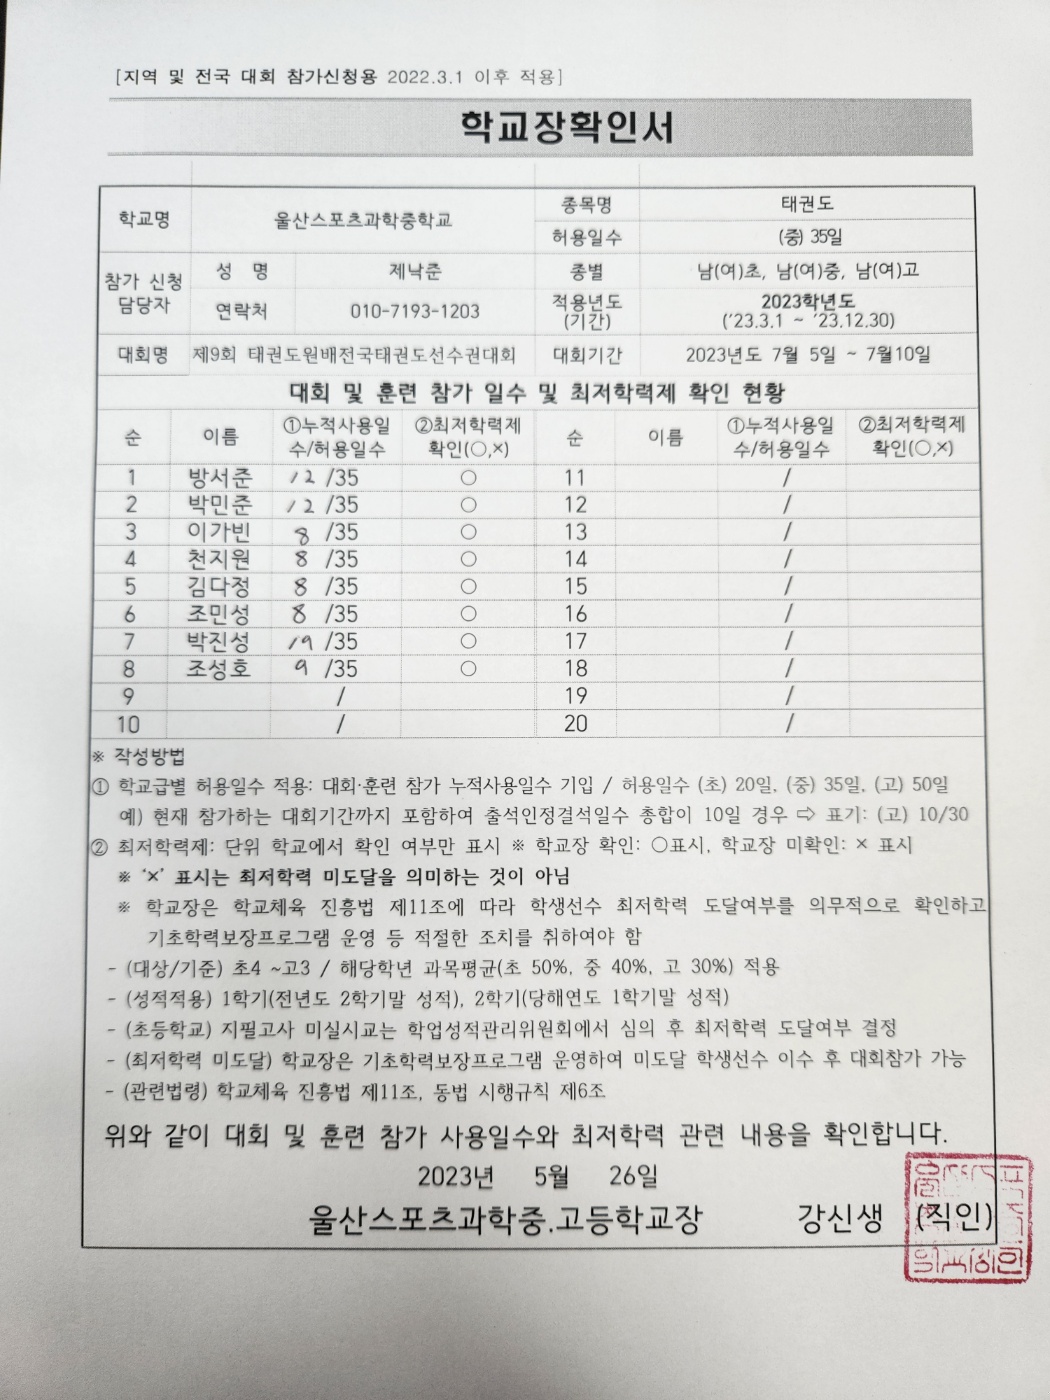 [지역 및 전국 대회 참가신청용 2022.3.1 이후 적용]
학교장확인서
학교명 울산스포츠과학중학교 종목명 태권도
허용일수 (중) 35일
참가 신청 담당자 성 명 제낙준 종별 남(여)초, 남(여)중, 남(여)고
연락처 010-7193-1203 적용년도 (기간) 2023학년도 ('23.3.1 ~ '23.12.30)
대회명 제9회 태권도원배전국태권도선수권대회 대회기간 2023년도 7월 5일 ~ 7월10일
대회 및 훈련 참가 일수 및 최저학력제 확인 현황
순 이름 ①누적사용일수/허용일수 ②최저학력제 확인(○,×) 순 이름 ①누적사용일수/허용일수 ②최저학력제 확인(○,×)
1 방서준 12 /35 ○ 11 /
2 박민준 12 /35 ○ 12 /
3 이가빈 8 /35 ○ 13 /
4 천지원 8 /35 ○ 14 /
5 김다정 8 /35 ○ 15 /
6 조민성 8 /35 ○ 16 /
7 박진성 19 /35 ○ 17 /
8 조성호 9 /35 ○ 18 /
9 / 19 /
10 / 20 /
※ 작성방법
① 학교급별 허용일수 적용: 대회·훈련 참가 누적사용일수 기입 / 허용일수 (초) 20일, (중) 35일, (고) 50일
예) 현재 참가하는 대회기간까지 포함하여 출석인정결석일수 총합이 10일 경우 ⇨ 표기: (고) 10/30
② 최저학력제: 단위 학교에서 확인 여부만 표시 ※ 학교장 확인: ○표시, 학교장 미확인: × 표시
※ '×' 표시는 최저학력 미도달을 의미하는 것이 아님
※ 학교장은 학교체육 진흥법 제11조에 따라 학생선수 최저학력 도달여부를 의무적으로 확인하고
기초학력보장프로그램 운영 등 적절한 조치를 취하여야 함
- (대상/기준) 초4 ~고3 / 해당학년 과목평균(초 50%, 중 40%, 고 30%) 적용
- (성적적용) 1학기(전년도 2학기말 성적), 2학기(당해연도 1학기말 성적)
- (초등학교) 지필고사 미실시교는 학업성적관리위원회에서 심의 후 최저학력 도달여부 결정
- (최저학력 미도달) 학교장은 기초학력보장프로그램 운영하여 미도달 학생선수 이수 후 대회참가 가능
- (관련법령) 학교체육 진흥법 제11조, 동법 시행규칙 제6조
위와 같이 대회 및 훈련 참가 사용일수와 최저학력 관련 내용을 확인합니다.
2023년 5월 26일
울산스포츠과학중.고등학교장 강신생 (직인)